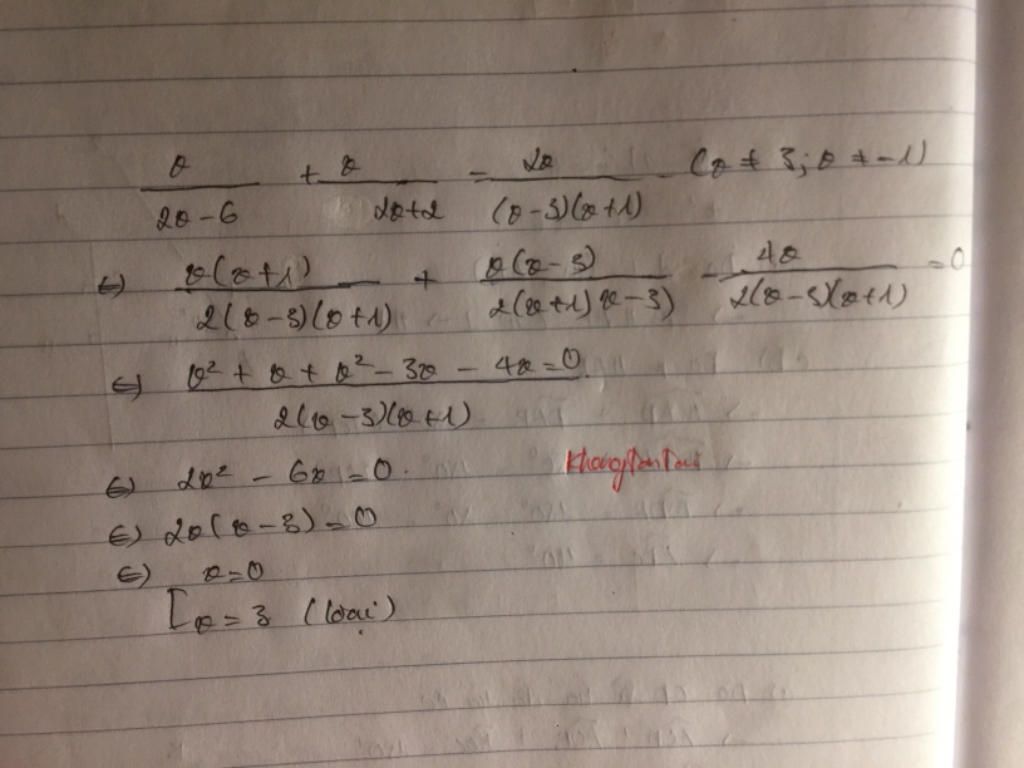 x/(2x-6) + x/(2x+2) = 2x/((x-3)(x+1)) (x ≠ 3; x ≠ -1)
⇔ x(x+1)/(2(x-3)(x+1)) + x(x-3)/(2(x+1)(x-3)) - 4x/(2(x-3)(x+1)) = 0
⇔ (x² + x + x² - 3x - 4x = 0)/(2(x-3)(x+1))
⇔ 2x² - 6x = 0.
KhongTonTai
⇔ 2x(x-3) = 0
⇔ x=0
[ x = 3 (loại)